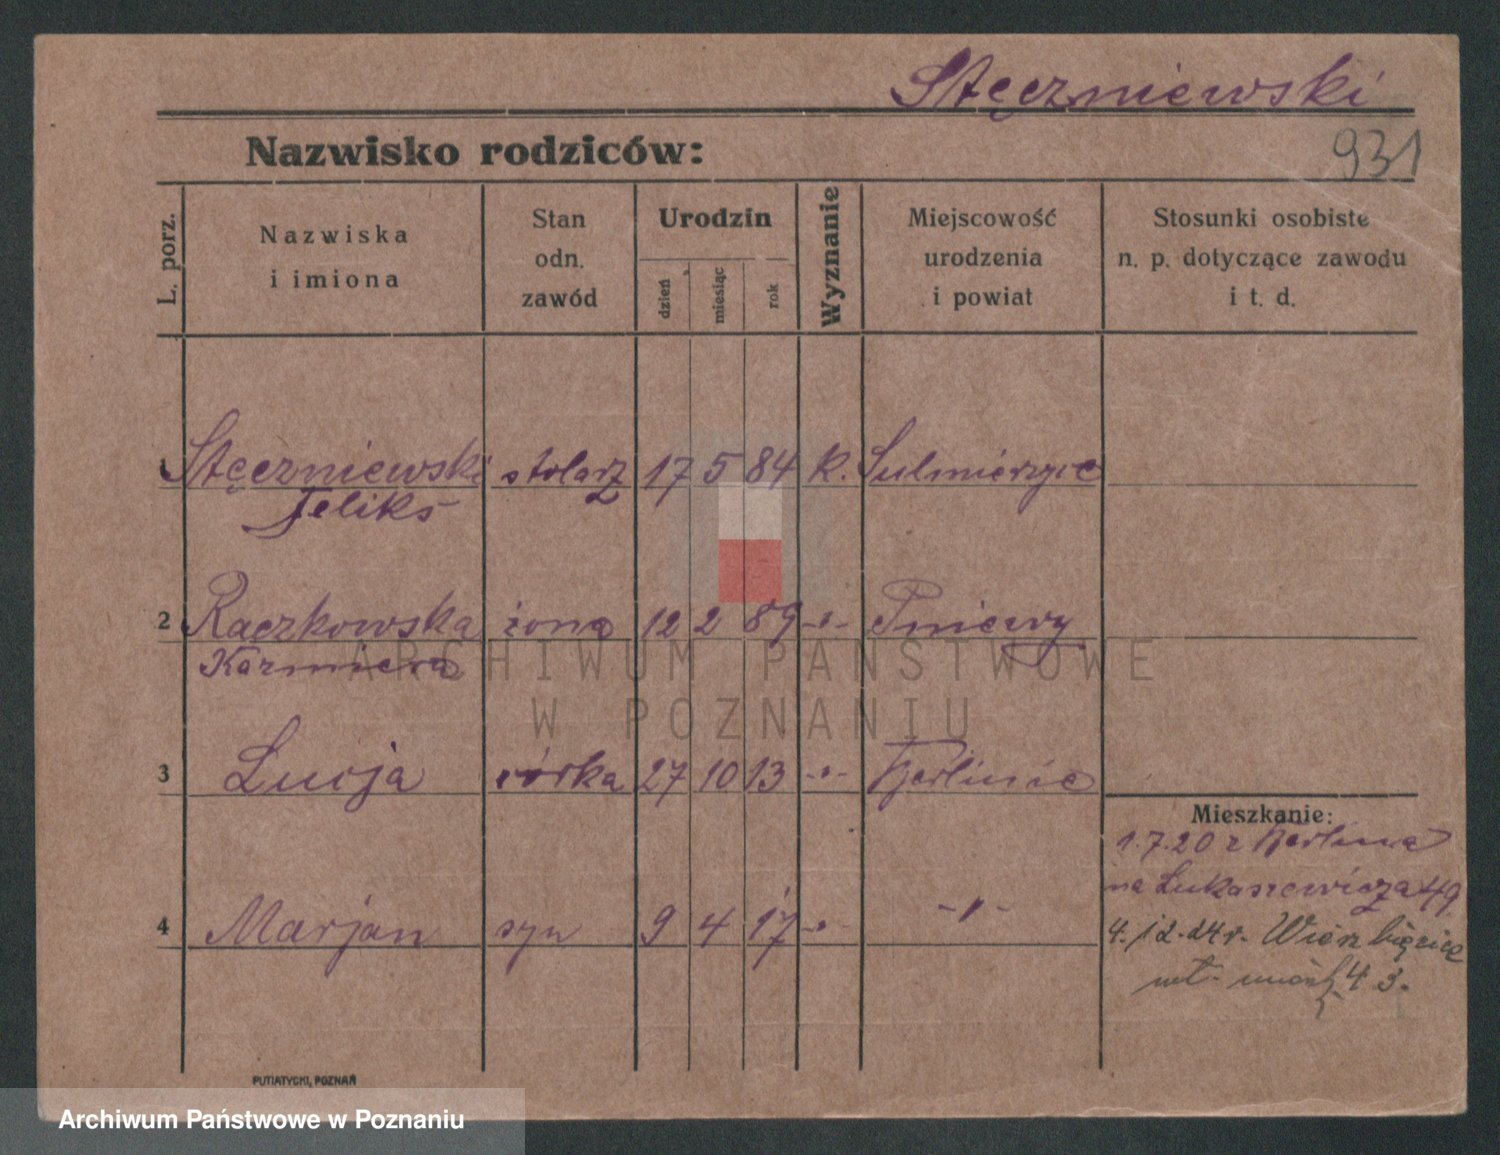 Stęczniewski
931
Nazwisko rodziców:
L. porz.
Nazwiska
i imiona
Stan
odn.
zawód
Urodzin
dzień
miesiąc
rok
Wyznanie
Miejscowość
urodzenia
i powiat
Stosunki osobiste
n. p. dotyczące zawodu
i t. d.
1 Stęczniewski stolarz 17 5 84 k. Sulmierzyce
Feliks
2 Raczkowska żona 12 2 89 -"- Pniewy
Kazmiera
3 Lucja córka 27 10 13 -"- Berlinie
4 Marjan syn 9 4 17 -"- -"-
Mieszkanie:
1.7.20 z Berlina
na Łukaszewicza 49.
4./12.24r. Wierzbięcice
43.
PUTIATYCKI, POZNAŃ
ARCHIWUM PAŃSTWOWE
W POZNANIU
Archiwum Państwowe w Poznaniu